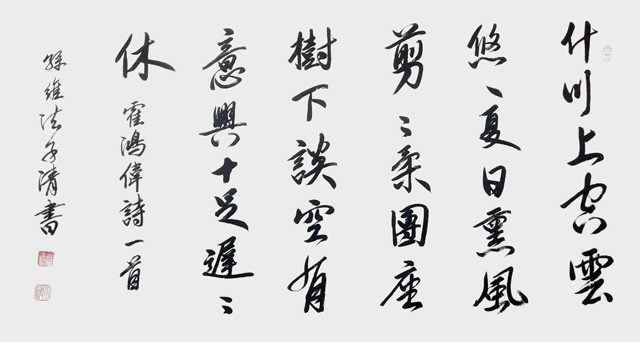 什川上空雲
悠々夏日熏風
剪々柔團座
樹下談空有
意興十足遲々
休
霍鴻偉詩一首
孫維法子清書